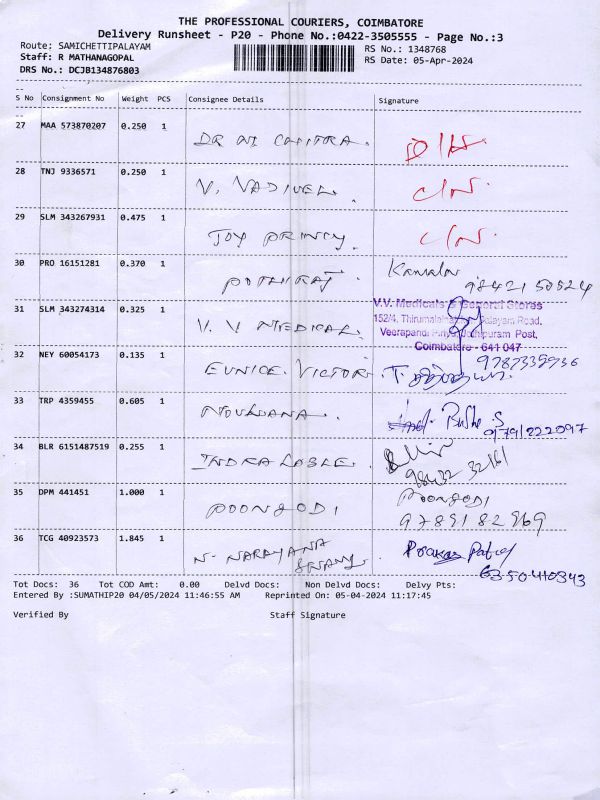 THE PROFESSIONAL COURIERS, COIMBATORE
Delivery Runsheet - P20 - Phone No.:0422-3505555 - Page No.:3
Route: SAMICHETTIPALAYAM RS No.: 1348768
Staff: R MATHANAGOPAL RS Date: 05-Apr-2024
DRS No.: DCJB134876803
S No Consignment No Weight PCS Consignee Details Signature
27 MAA 573870207 0.250 1
DR
28 TNJ 9336571 0.250 1
V. VADIVEL. C/N.
29 SLM 343267931 0.475 1
JOY PRINCY. C/N.
30 PRO 16151281 0.370 1
POTHIRAJ 98421 50524
31 SLM 343274314 0.325 1 V.V. Medicals & General Stores
152/4, Road.
V. V MEDICAL. Veerapandi Post,
Coimbatore - 641 047
32 NEY 60054173 0.135 1
EUNICE. VICTOR.
33 TRP 4359455 0.605 1
9791222097
34 BLR 6151487519 0.255 1
35 DPM 441451 1.000 1 POONGODI
POONGODI 9789182969
36 TCG 40923573 1.845 1
N. NARAYANA
SWAMY. 6350410343
Tot Docs: 36 Tot COD Amt: 0.00 Delvd Docs: Non Delvd Docs: Delvy Pts:
Entered By :SUMATHIP20 04/05/2024 11:46:55 AM Reprinted On: 05-04-2024 11:17:45
Verified By Staff Signature